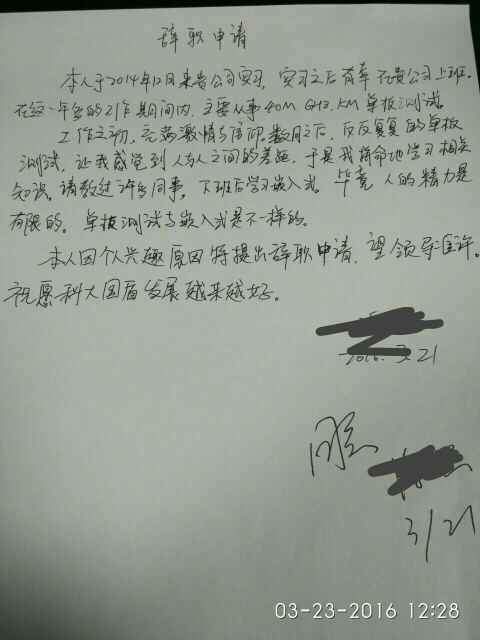 辞职申请
本人于2014年12月来贵公司实习,实习之后有幸在贵公司上班。
在这一年多的工作期间内,主要从事40M GHz, KM 单板测试。
工作之初,充满激情与信仰,数月之后,反反复复的单板
测试,让我感觉到人与人之间的差距,于是我拼命地学习相关
知识。请教过许多同事,下班后学习嵌入式。毕竟人的精力是
有限的。单板测试与嵌入式是不一样的。
本人因个人兴趣原因特提出辞职申请,望领导准许。
祝愿科大国盾发展越来越好。
2016.3.21
同意
3/21
03-23-2016 12:28